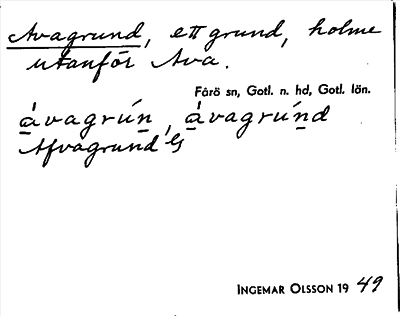 Avagrund, ett grund, holme
utanför Ava.
Fårö sn, Gotl. n. hd, Gotl. län.
ávagrún, ávagrúnd
Afvagrund
INGEMAR OLSSON 19 49